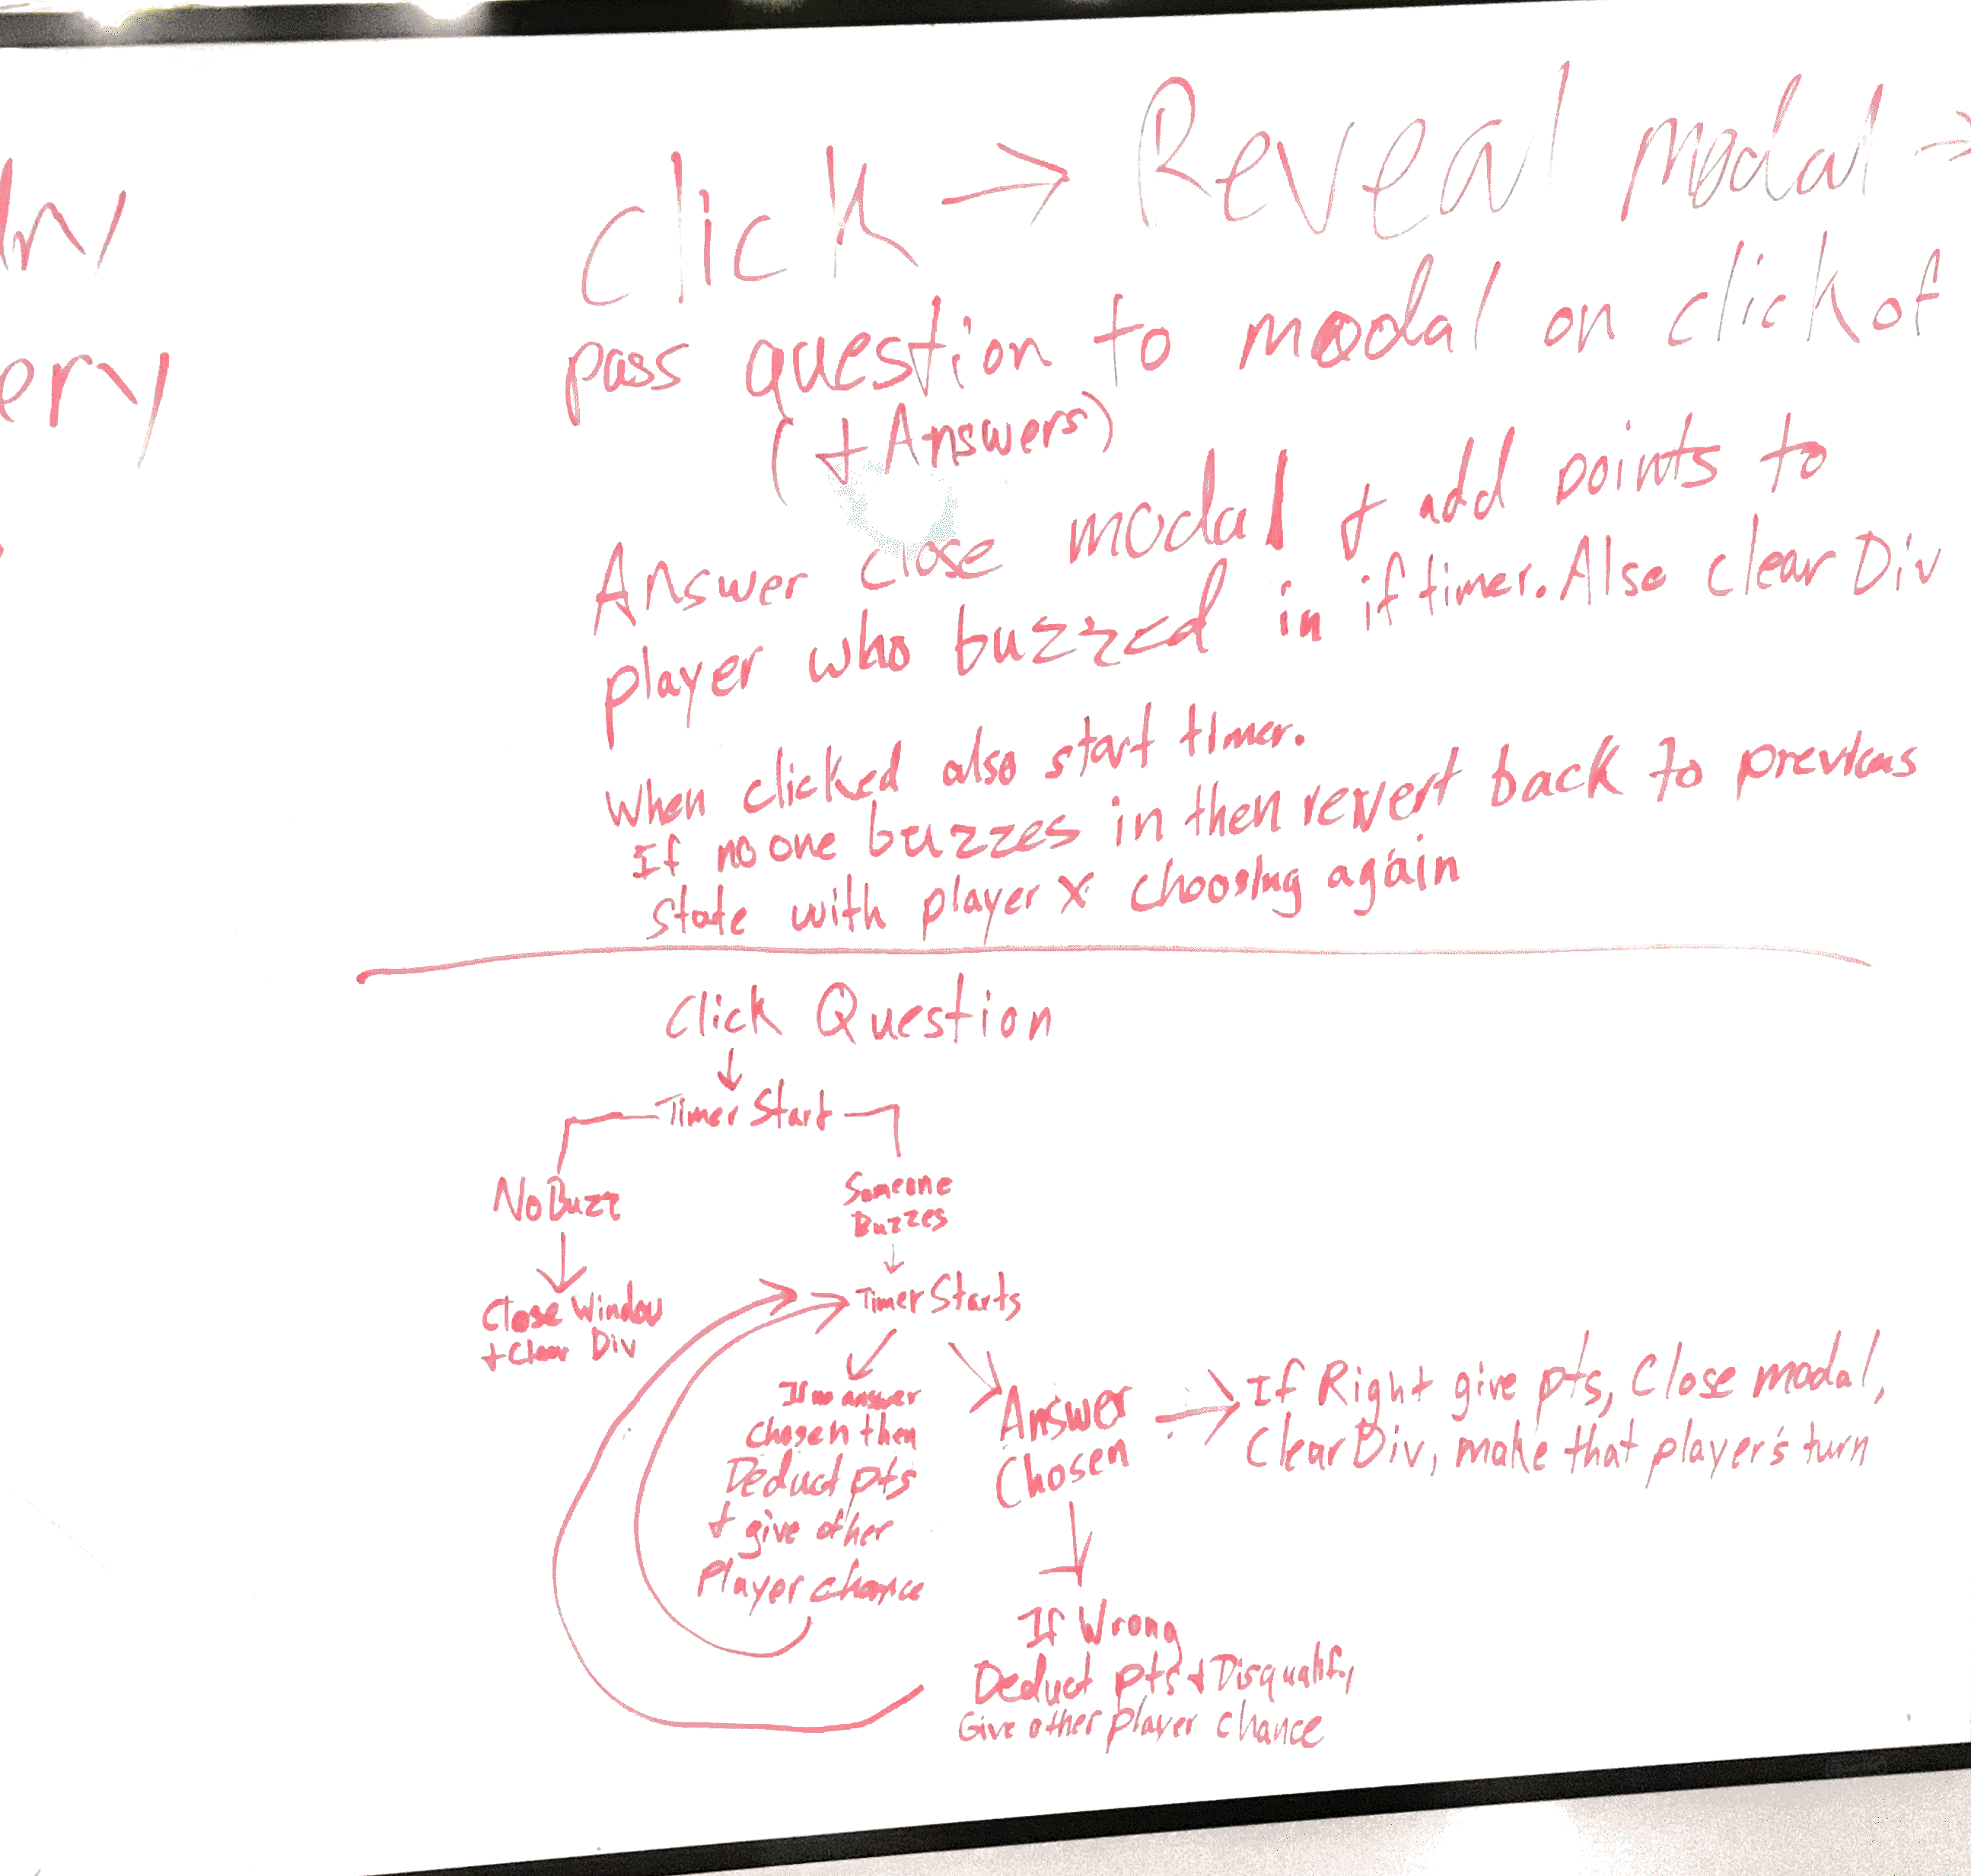 ery
Click → Reveal modal →
pass question to modal on click of
(+ Answers)
Answer close modal + add points to
player who buzzed in if timer. Also clear Div
When clicked also start timer.
If no one buzzes in then revert back to previous
state with player X choosing again
Click Question
Timer Start
No Buzz
Close Window
+ Clear Div
Someone
Buzzes
Timer Starts
If no answer
chosen then
Deduct pts
+ give other
Player chance
Answer
Chosen
If Right give pts, Close modal,
Clear Div, make that player's turn
If Wrong
Deduct pts + Disqualify
Give other player chance